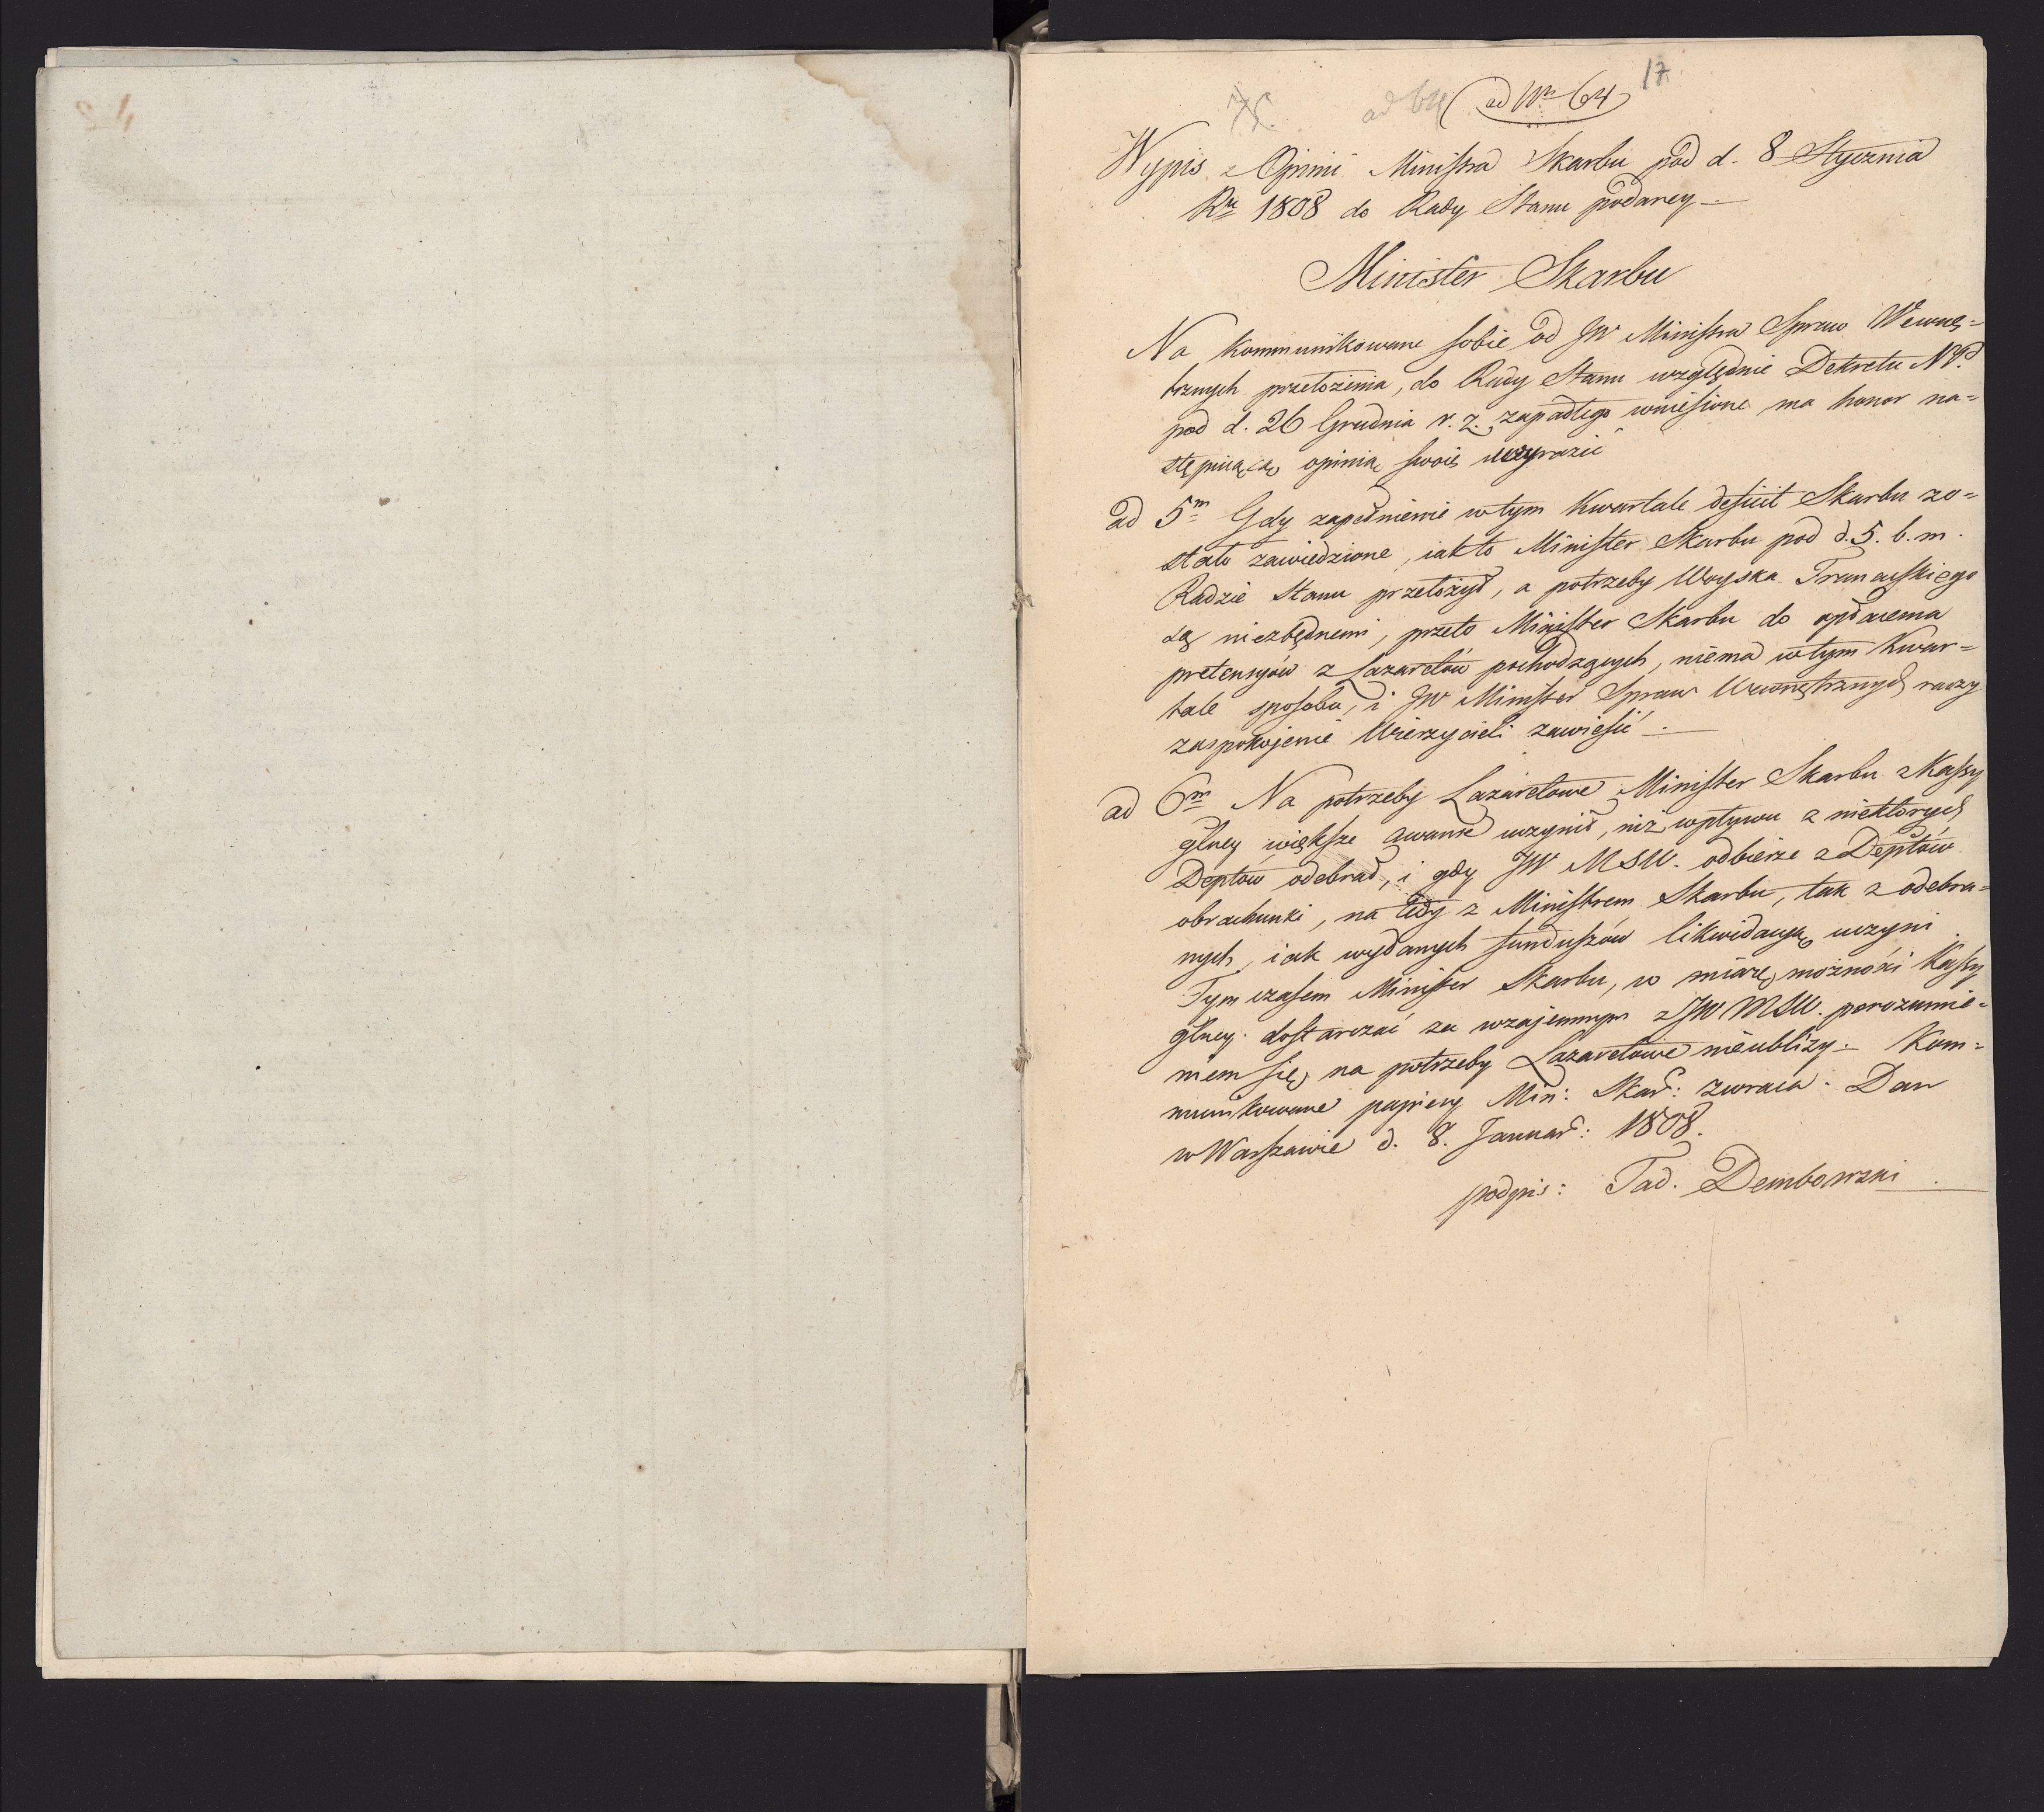 17
ad 64 ad Nr 64
Wypis z Opinii Ministra Skarbu pod d. 8 Stycznia
Ru 1808 do Rady Stanu podaney —
Minister Skarbu
Na kommunikowane sobie od JW Ministra Spraw Wewnę=
trznych przełożenia, do Rady Stanu względnie Dekretu NP.
pod d. 26 Grudnia r. z. zapadłego wniesione ma honor na=
stępuiącą opinią swoię wyrazić
ad 5m Gdy zapełnienie w tym Kwartale deficit Skarbu zo=
stało zawiedzione, iak to Minister Skarbu pod d. 5. b. m.
Radzie Stanu przełożył, a potrzeby Woyska Francuskiego
są niezbędnemi, przeto Minister Skarbu do opłacenia
pretensyów z Lazaretów pochodzących, niema w tym Kwar=
tale sposobu, i JW Minister Spraw Wewnętrznych raczy
zaspokojenie Wierzycieli zawiesić —.
ad 6m Na potrzeby Lazaretowe Minister Skarbu z Kassy
głney większe awanse uczynił, niż wpływu z niektórych
Deptów odebrał, i gdy JW MSW. odbierze z Deptów
obrachunki, na tedy z Ministrem Skarbu, tak z odebra=
nych, iak wydanych funduszów likwidacyą uczyni.
Tym czasem Minister Skarbu, w miarę możności Kassy
głney. dostarczać za wzajemnym z JW MSW. porozumie=
niem się, na potrzeby Lazaretowe nieubliży. — Kom=
munikowane papiery Min: Skar: zwraca. Dan
w Warszawie d. 8. Januar: 1808.
podpis: Tad. Dembowski